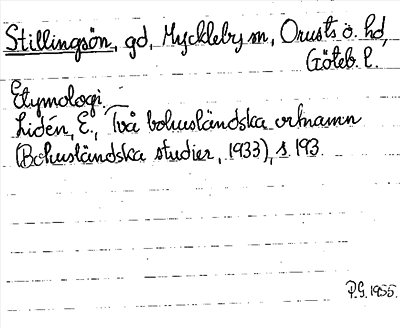 Stillingsön, gd, Myckleby sn, Orusts ö. hd,
Göteb. l.
Etymologi.
Lidén, E., Två bohusländska ortnamn
(Bohusländska studier, 1933), s. 193.
P.G. 1955.